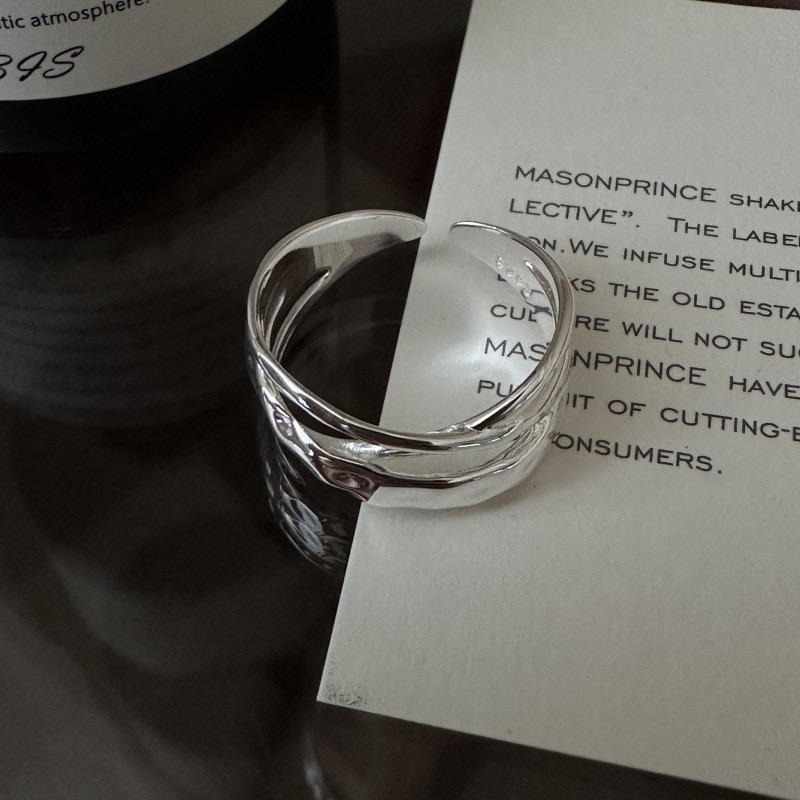 tic atmosphere.
MASONPRINCE SHAK
LECTIVE”. THE LABE
ON.WE INFUSE MULTI
KS THE OLD ESTA
CUL RE WILL NOT SU
MAS NPRINCE HAVE
PU IT OF CUTTING-E
ONSUMERS.